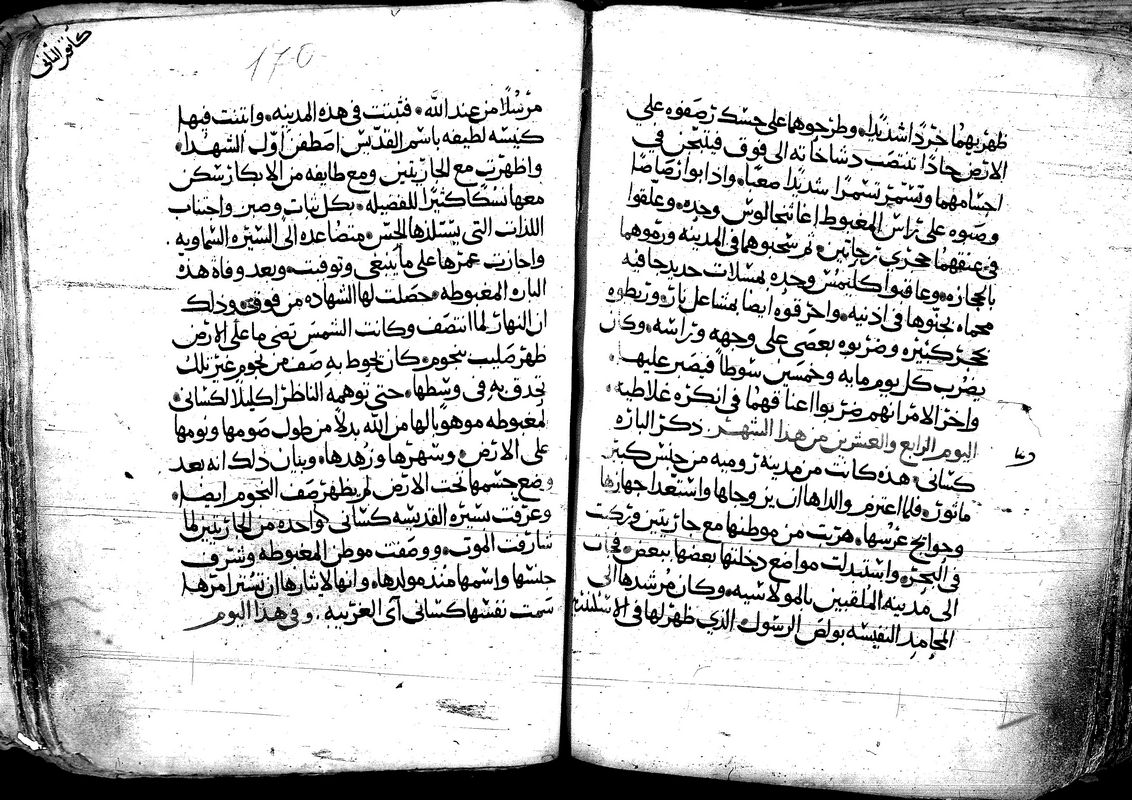 ظهريهما جردًا شديدًا، وطرحوهما على حسك رصفوه على
الارض حادًا تنتصب دشاخاته الى فوق فينخن في
اجسامهما وتسمر تسمرًا شديدًا صعبًا، واذابوا رصاصًا
وصبوه على راس المغبوط اغاثنجالوس وحده، وعلقوا
في عنقهما حجري رحاتين، ثم سحبوهما في المدينه ورموهما
بالحجاره، وعاقبوا كليمس وحده بمسلات حديد جافيه
محماه نخوها في اذنيه، واحرقوه ايضا بمشاعل نار، وربطوه
بحجر كبيره وضربوه بعصي على وجهه وراسه، وكان
يضرب كل يوم مايه وخمسين سوطًا فيصبر عليها
واخر الامر انهم ضربوا اعناقهما في انكره غلاطيه
اليوم الرابع والعشرين من هذا الشهر. ذكر الباره
كسانى، هذه كانت من مدينة روميه من جنس كبير
ماثور، فلما اعتزم والداها ان يزوجاها واستعدا جهازها
وحوايج عرسها، هربت من موطنها مع جاريتين وركبت
في البحر، واستبدلت مواضع دخلتها بعضها ببعض، فجات
الى مدينة الملقبين بالمولاسيه، وكان مرشدها الى
المحامد النفيسه بولص الرسول الذي ظهر لها في الاسكندريه
كانون الثانى
170
مرسلًا من عند الله، فثبتت في هذه المدينه، وابتنت فيها
كنيسه لطيفه باسم القديس اصطفن اول الشهدا،
واظهرت مع الجاريتين ومع طايفه من الابكار سكن
معها نسكًا كثيرًا للفضيله، بكل ثبات وصبر واجتناب
اللذات التي يستلذها الحس، متصاعده الى السيره السماويه.
واجازت عمرها على ما ينبغي وتوفيت، وبعد وفاة هذه
الباره المغبوطه، حصلت لها الشهاده من فوق، وذلك
ان النهار لما انتصف وكانت الشمس تضي ما على الارض
ظهر صليب نجوم، كان يحوط به صف من نجوم غير تلك
تحدق به في وسطها، حتى توهمه الناظر اكليلًا لكسانى
المغبوطه موهوبًا لها من الله بدلًا من طول صومها ونومها
على الارض، وسهرها وزهدها، وبيان ذلك انه بعد
وضع جسمها تحت الارض لم يظهر صف النجوم ايضا،
وعرفت سيرة القديسه كسانى واحده من الجاريتين لما
شارفت الموت، ووصفت موطن المغبوطه وشرف
جنسها واسمها منذ مولدها، وانها لايثارها ان تستر امرها
سمت نفسها كسانى اى الغريبه. وفي هذا اليوم